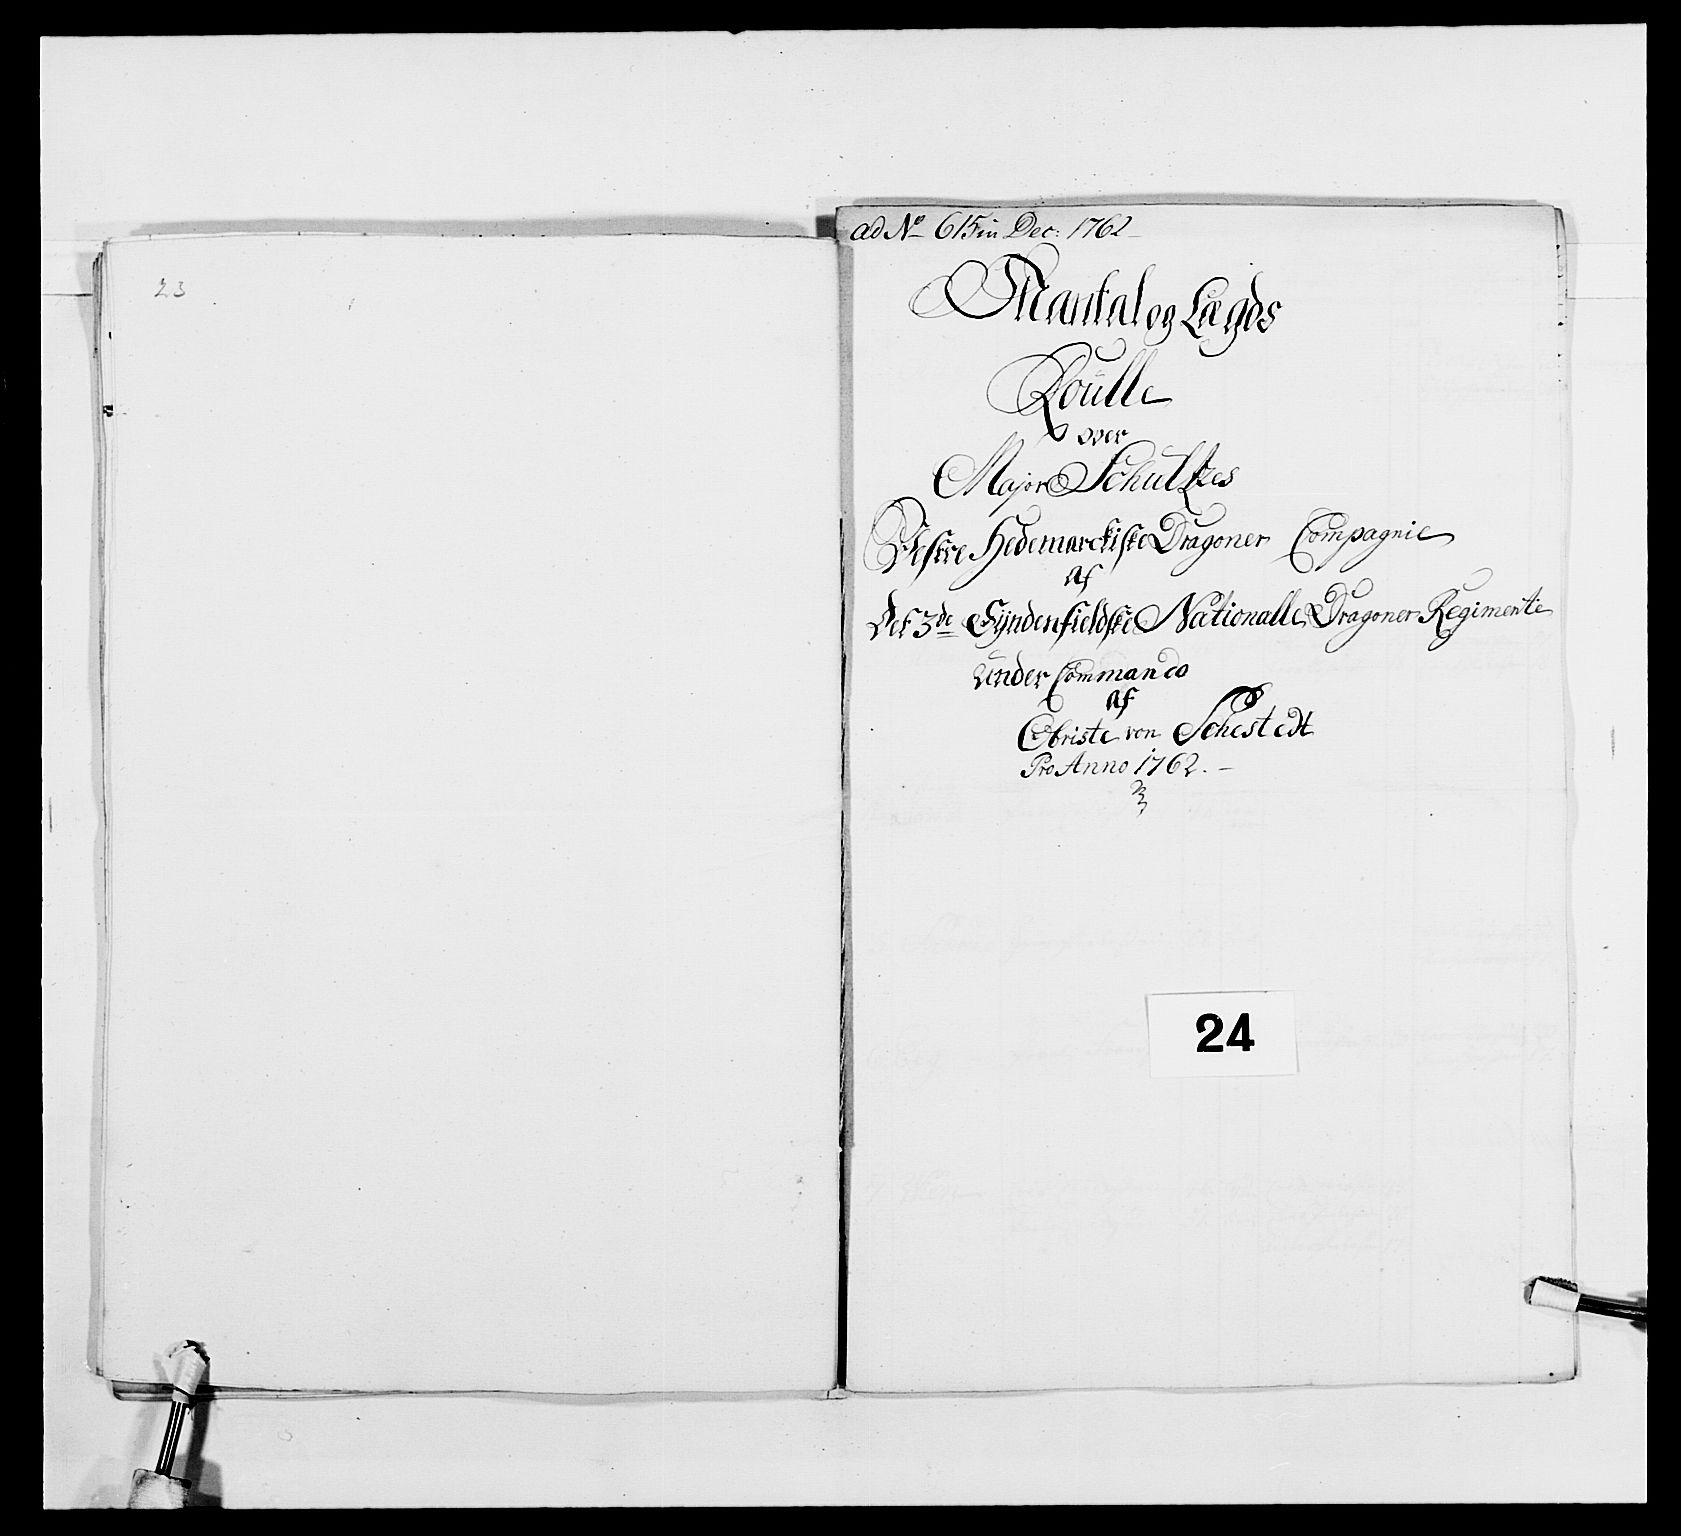 23
ad No 615 in Dec: 1762
Mantal og Lægds
Roülle
over
Major Schültzes
Vestre Hedemarckiske Dragoner Compagnie
af
Det 3de Syndenfieldske Nationalle Dragoner Regimente
ünder Commando
af
Obriste von Sehestedt
Pro Anno 1762.
24